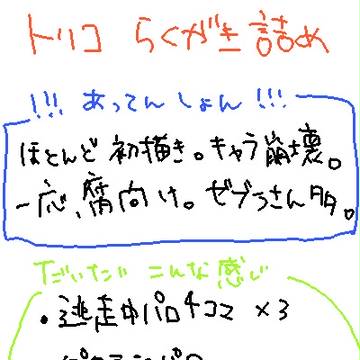 トリコ らくがき詰め
!!! あってんしょん !!!
ほとんど初描き。キャラ崩壊。
一応、腐向け。ゼブラさん多。
だいたい こんな感じ
・逃走中パロ4コマ ×3